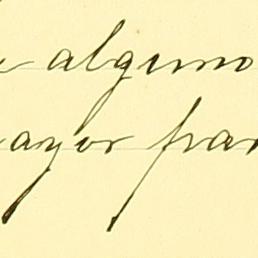 alguno
ayor fran